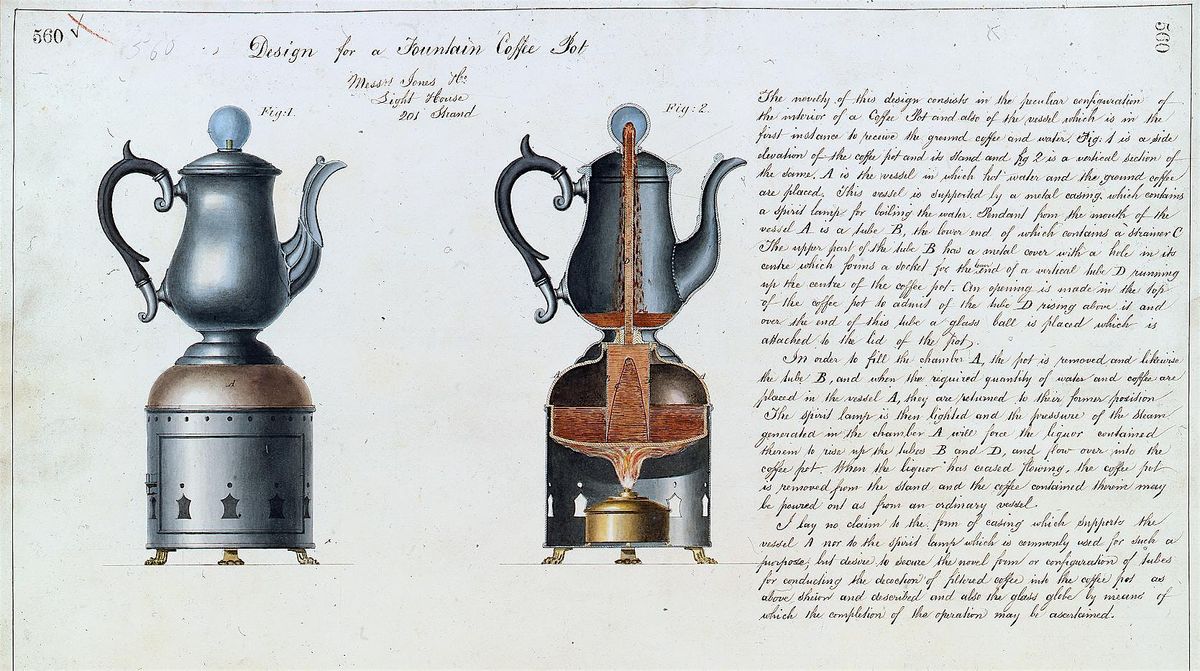 560
560
560
Design for a Fountain Coffee Pot
Messrs Jones &Co
Light House
201 Strand
Fig: 1.
Fig: 2.
A
D
The novelty of this design consists in the peculiar configuration of
the interior of a Coffee Pot and also of the vessel which is in the
first instance to receive the ground coffee and water. Fig. 1 is a side
elevation of the coffee pot and its stand and fig 2 is a vertical section of
the same. A is the vessel in which hot water and the ground coffee
are placed. This vessel is supported by a metal casing, which contains
a spirit lamp for boiling the water. Pendant from the mouth of the
vessel A is a tube B, the lower end of which contains a strainer C
The upper part of the tube B has a metal cover with a hole in its
centre which forms a socket for the end of a vertical tube D running
up the centre of the coffee pot. An opening is made in the top
of the coffee pot to admit of the tube D rising above it and
over the end of this tube a glass ball is placed which is
attached to the lid of the pot.
In order to fill the chamber A, the pot is removed and likewise
the tube B, and when the required quantity of water and coffee are
placed in the vessel A, they are returned to their former position
The spirit lamp is then lighted and the pressure of the steam
generated in the chamber A will force the liquor contained
therein to rise up the tubes B and D, and flow over into the
coffee pot. When the liquor has ceased flowing, the coffee pot
is removed from the stand and the coffee contained therein may
be poured out as from an ordinary vessel
I lay no claim to the form of casing which supports the
vessel A nor to the spirit lamp which is commonly used for such a
purpose; but desire to secure the novel form or configuration of tubes
for conducting the decoction of filtered coffee into the coffee pot as
above shewn and described and also the glass globe by means of
which the completion of the operation may be ascertained.